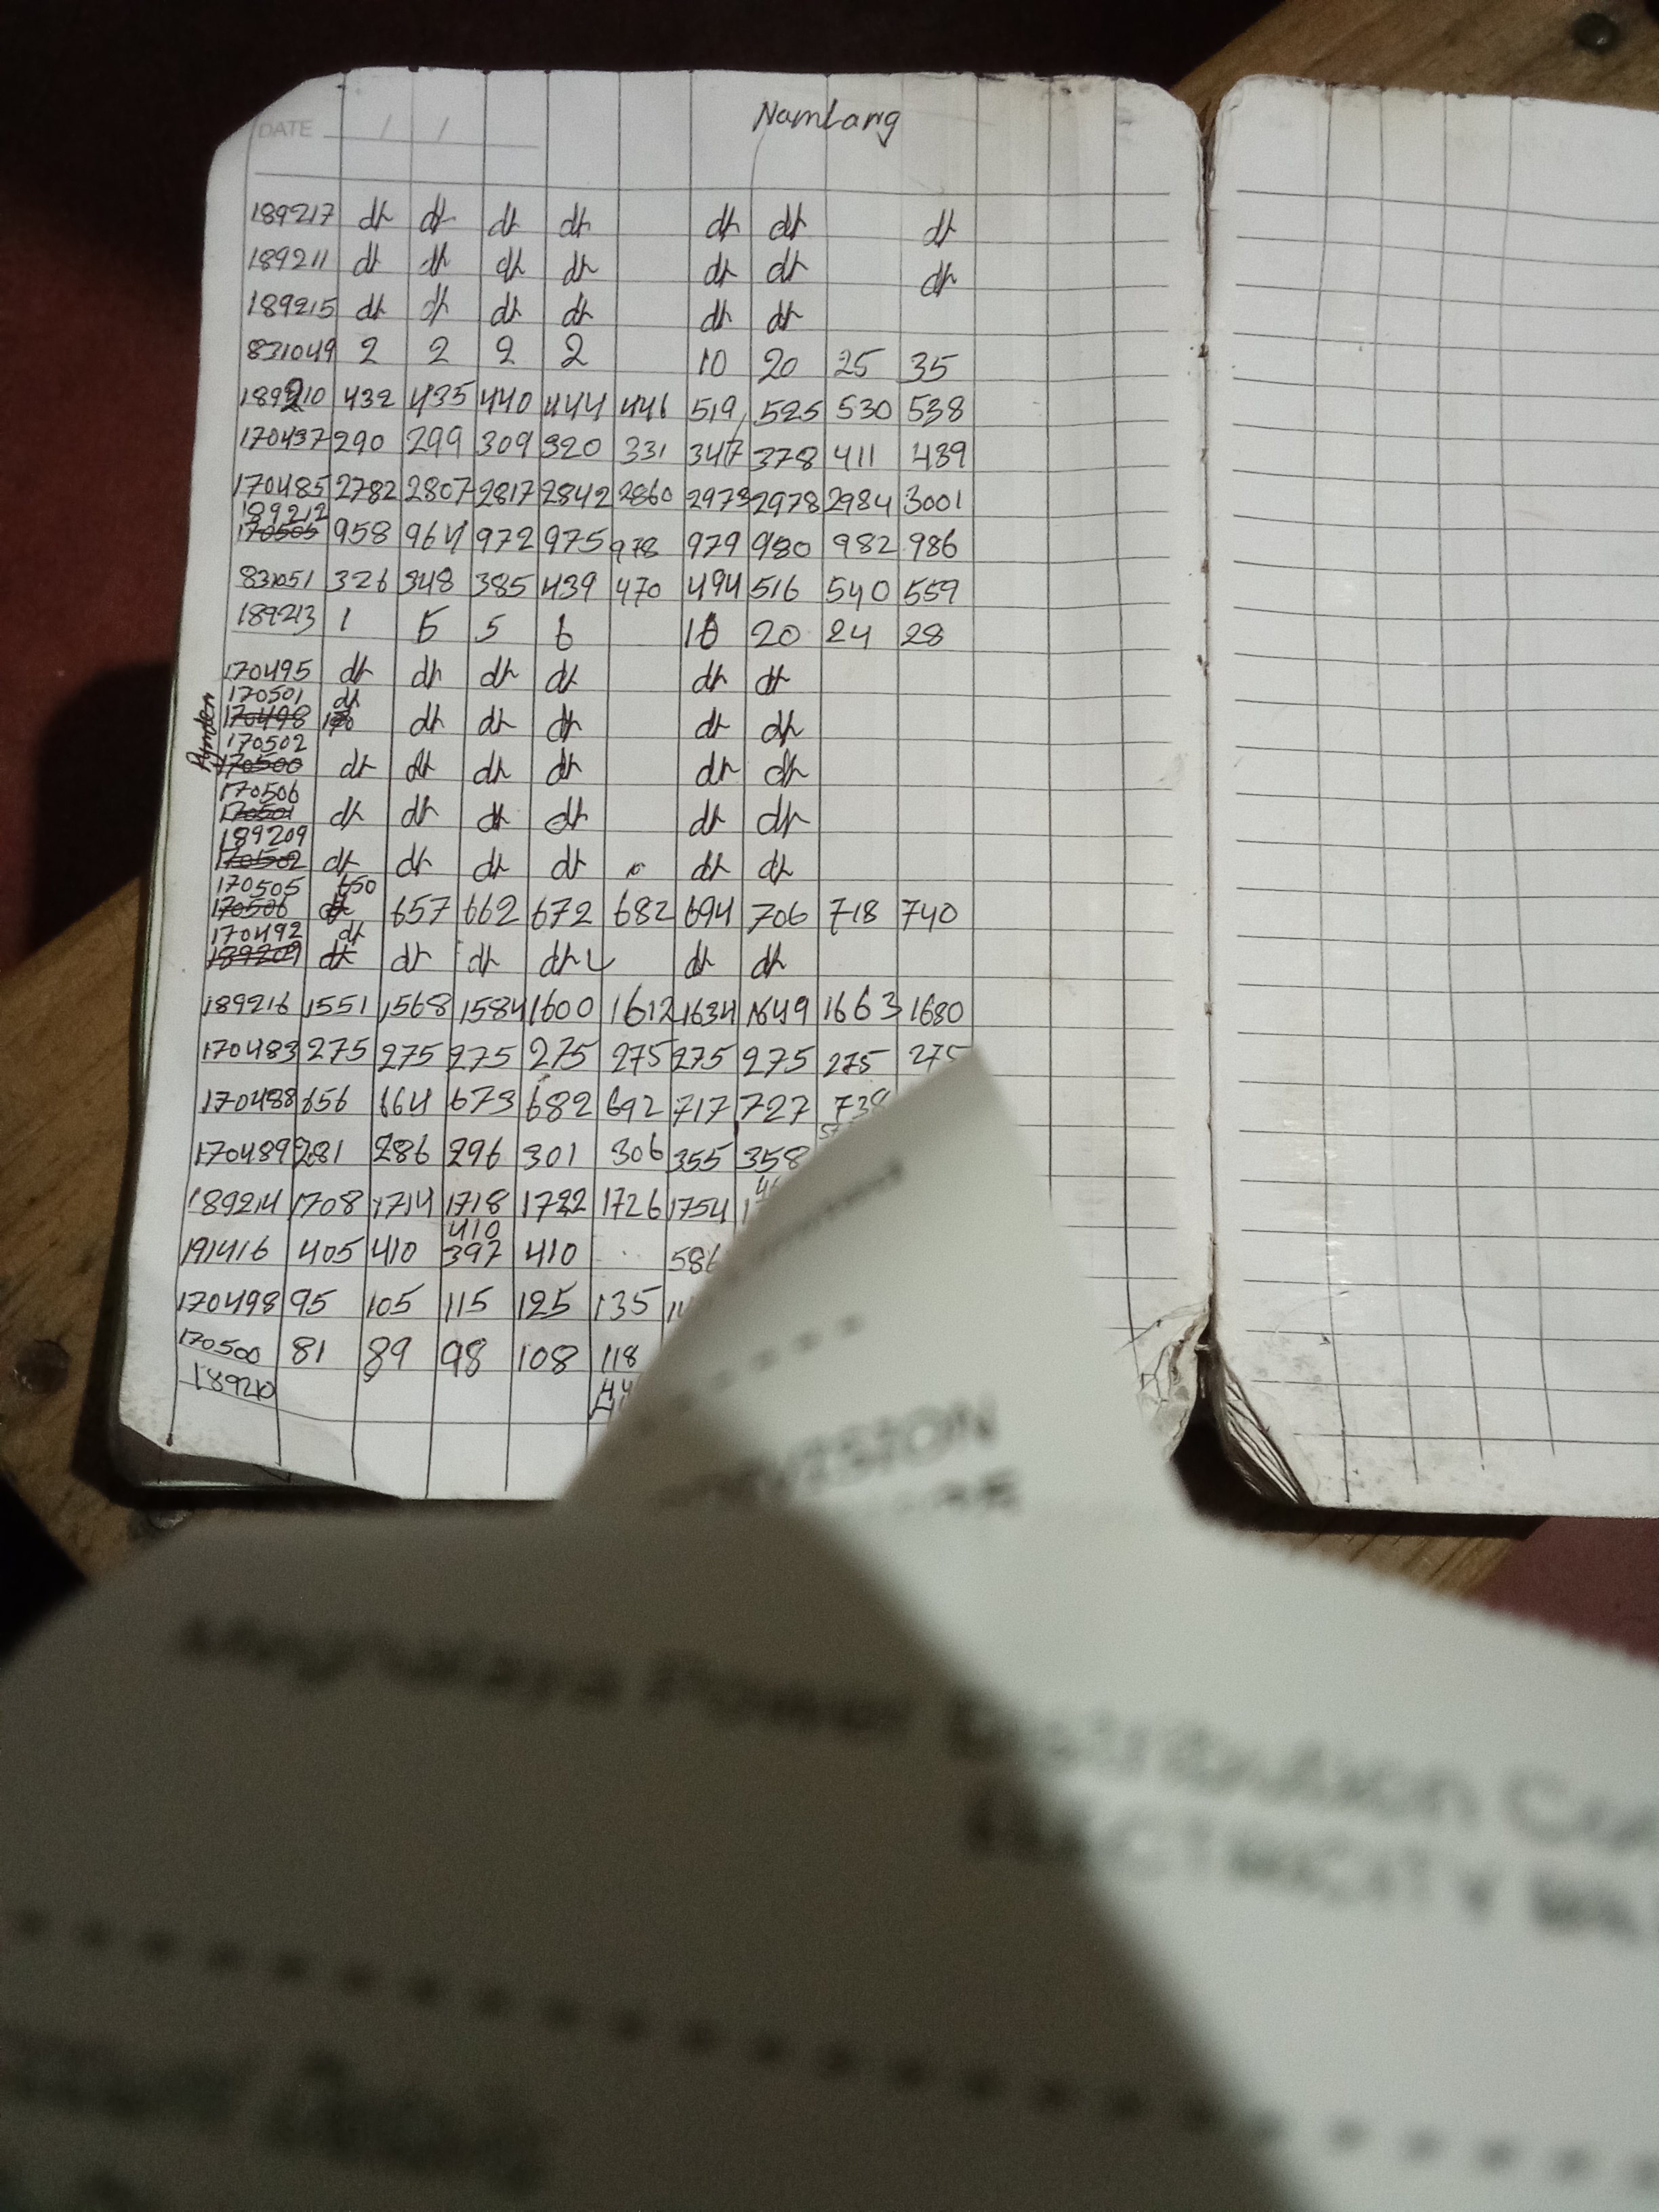 DATE / /
Namlang
189217 dt dt dt dt dt dt dt
189211 dt dt dt dt dt dt dt
189215 dt dt dt dt dt dt
831049 2 2 2 2 10 20 25 35
189210 432 435 440 444 446 519 525 530 538
170437 290 299 309 320 331 347 378 411 439
170485 2782 2807 2817 2842 2860 2973 2978 2984 3001
189212
170505 958 964 972 975 978 979 980 982 986
831051 326 348 385 439 470 494 516 540 559
189213 1 5 5 6 16 20 24 28
170495 dt dt dt dt dt dt
170501 dt
170498 dt dt dt dt dt
170502
170500 dt dt dt dt dt dt
170506
170501 dt dt dt dt dt dt
189209
170502 dt dt dt dt dt dt
170505 650
170506 657 662 672 682 694 706 718 740
170492 dt
189209 dt dt dt dt dt dt
189216 1551 1568 1584 1600 1612 1634 1649 1663 1680
170483 275 275 275 275 275 275 275 275 275
170488 656 664 673 682 692 717 727
170489 281 286 296 301 306 355 358
189214 1708 1714 1718 1722 1726 1754
410
191416 405 410 397 410 586
170498 95 105 115 125 135
170500 81 89 98 108 118
189210
Power Distribution
ELECTRICITY